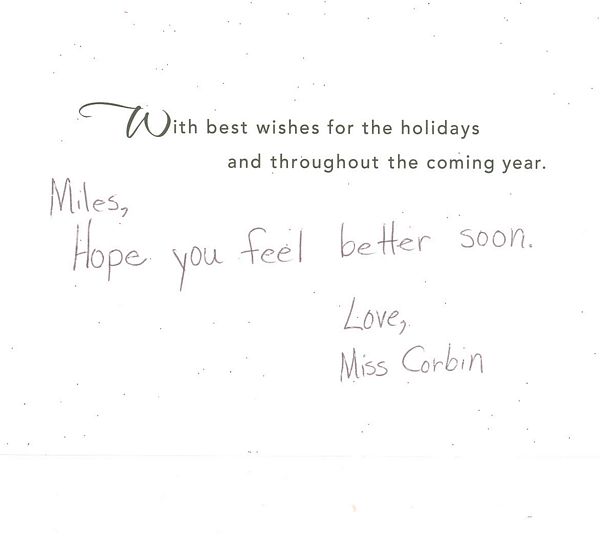 With best wishes for the holidays
and throughout the coming year.
Miles,
Hope you feel better soon.
Love,
Miss Corbin